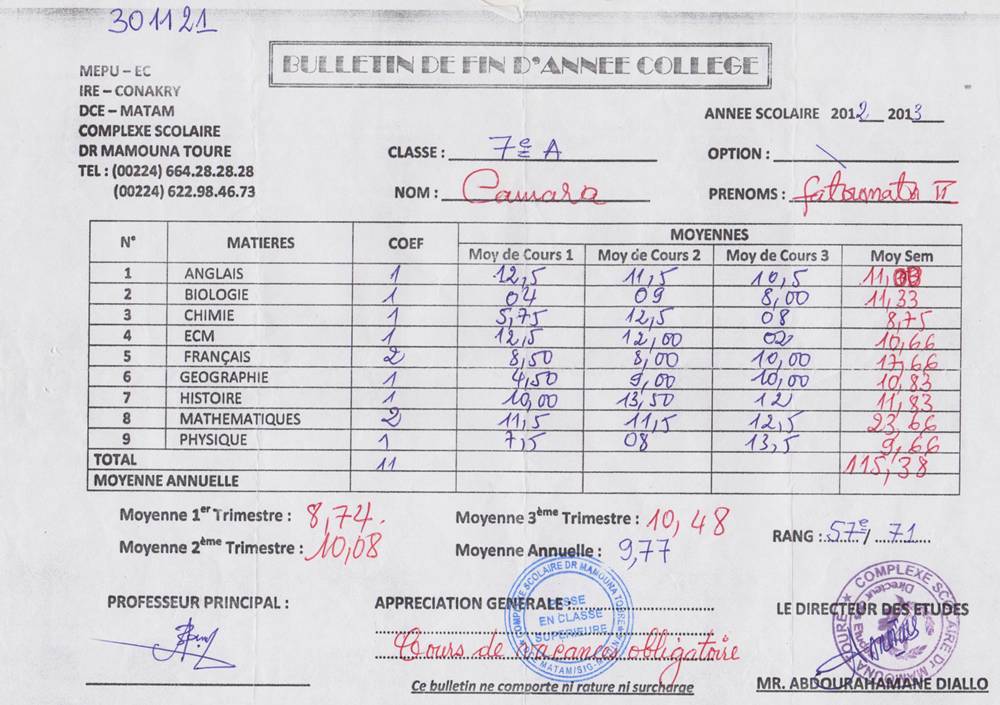 301121
BULLETIN DE FIN D'ANNEE COLLEGE
MEPU – EC
IRE – CONAKRY
DCE – MATAM
COMPLEXE SCOLAIRE
DR MAMOUNA TOURE
TEL : (00224) 664.28.28.28
(00224) 622.98.46.73
ANNEE SCOLAIRE 2012 2013
CLASSE : 7e A OPTION :
NOM : Camara PRENOMS : fatoumata II
N° MATIERES COEF MOYENNES
Moy de Cours 1 Moy de Cours 2 Moy de Cours 3 Moy Sem
1 ANGLAIS 1 12,5 11,5 10,5 11,
2 BIOLOGIE 1 04 09 8,00 11,33
3 CHIMIE 1 5,75 12,5 08 8,75
4 ECM 1 12,5 12,00 02 10,66
5 FRANÇAIS 2 8,50 8,00 10,00 17,66
6 GEOGRAPHIE 1 4,50 9,00 10,00 10,83
7 HISTOIRE 1 10,00 13,50 12 11,83
8 MATHEMATIQUES 2 11,5 11,5 12,5 23,66
9 PHYSIQUE 1 7,5 08 13,5 9,66
TOTAL 11 115,38
MOYENNE ANNUELLE
Moyenne 1er Trimestre : 8,74. Moyenne 3ème Trimestre : 10,48
Moyenne 2ème Trimestre : 10,08 Moyenne Annuelle : 9,77
RANG : 57e/ 71
PROFESSEUR PRINCIPAL : APPRECIATION GENERALE : LE DIRECTEUR DES ETUDES
COMPLEXE SCOLAIRE DR MAMOUNA TOURE
EN CLASSE
SUPERIEURE
Cours de vacances obligatoire
COMPLEXE SCOLAIRE Dr MAMOUNA TOURE
Ce bulletin ne comporte ni rature ni surcharge
MR. ABDOURAHAMANE DIALLO